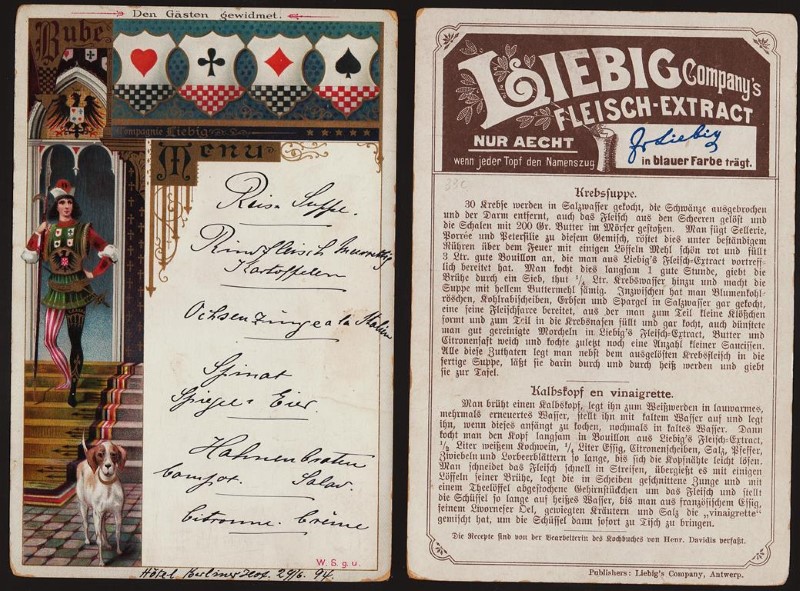 Den Gästen gewidmet.
Bube
Compagnie Liebig
Menu
Reis Suppe.
Rindfleisch
Kartoffelen
Ochsenzunge a la
Spinat
Spiegel Eier.
Hahnenbraten
Compot. Salat.
Citronne. Crême
W. S. g. u.
Hôtel Berliner Hof. 29/6. 94.
LIEBIG Company's
FLEISCH-EXTRACT
NUR AECHT
wenn jeder Topf den Namenszug
J v Liebig
in blauer Farbe trägt.
33c
Krebssuppe.
30 Krebse werden in Salzwasser gekocht, die Schwänze ausgebrochen
und der Darm entfernt, auch das Fleisch aus den Scheeren gelöst und
die Schalen mit 200 Gr. Butter im Mörser gestoßen. Man fügt Sellerie,
Porrée und Petersilie zu diesem Gemisch, röstet dies unter beständigem
Rühren über dem Feuer mit einigen Löffeln Mehl schön rot und füllt
3 Ltr. gute Bouillon an, die man aus Liebig's Fleisch-Extract vortreff-
lich bereitet hat. Man kocht dies langsam 1 gute Stunde, giebt die
Brühe durch ein Sieb, thut 1/4 Ltr. Krebswasser hinzu und macht die
Suppe mit hellem Buttermehl sämig. Inzwischen hat man Blumenkohl-
röschen, Kohlrabischeiben, Erbsen und Spargel in Salzwasser gar gekocht,
eine feine Fleischfarce bereitet, aus der man zum Teil kleine Klößchen
formt und zum Teil in die Krebsnasen füllt und gar kocht, auch dünstete
man gut gereinigte Morcheln in Liebig's Fleisch-Extract, Butter und
Citronensaft weich und kochte zuletzt noch eine Anzahl kleiner Saucissen.
Alle diese Zuthaten legt man nebst dem ausgelösten Krebsfleisch in die
fertige Suppe, läßt sie darin durch und durch heiß werden und giebt
sie zur Tafel.
Kalbskopf en vinaigrette.
Man brüht einen Kalbskopf, legt ihn zum Weißwerden in lauwarmes,
mehrmals erneuertes Wasser, stellt ihn mit kaltem Wasser auf und legt
ihn, wenn dieses anfängt zu kochen, nochmals in kaltes Wasser. Dann
kocht man den Kopf langsam in Bouillon aus Liebig's Fleisch-Extract,
1/2 Liter weißem Kochwein, 1/4 Liter Essig, Citronenscheiben, Salz, Pfeffer,
Zwiebeln und Lorbeerblättern so lange, bis sich die Kopfnähte leicht lösen.
Man schneidet das Fleisch schnell in Streifen, übergießt es mit einigen
Löffeln seiner Brühe, legt die in Scheiben geschnittene Zunge und mit
einem Theelöffel abgestochene Gehirnstückchen um das Fleisch und stellt
die Schüssel so lange auf heißes Wasser, bis man aus französischem Essig,
feinem Livorneser Oel, gewiegten Kräutern und Salz die „vinaigrette"
gemischt hat, um die Schüssel dann sofort zu Tisch zu bringen.
Die Recepte sind von der Bearbeiterin des Kochbuches von Henr. Davidis verfaßt.
Publishers: Liebig's Company, Antwerp.